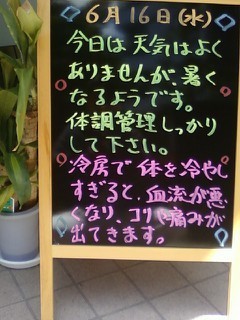 6月16日(水)
今日は天気はよく
ありませんが、暑く
なるようです。
体調管理しっかり
して下さい。
冷房で体を冷やし
すぎると、血流が悪
くなり、コリや痛みが
出てきます。